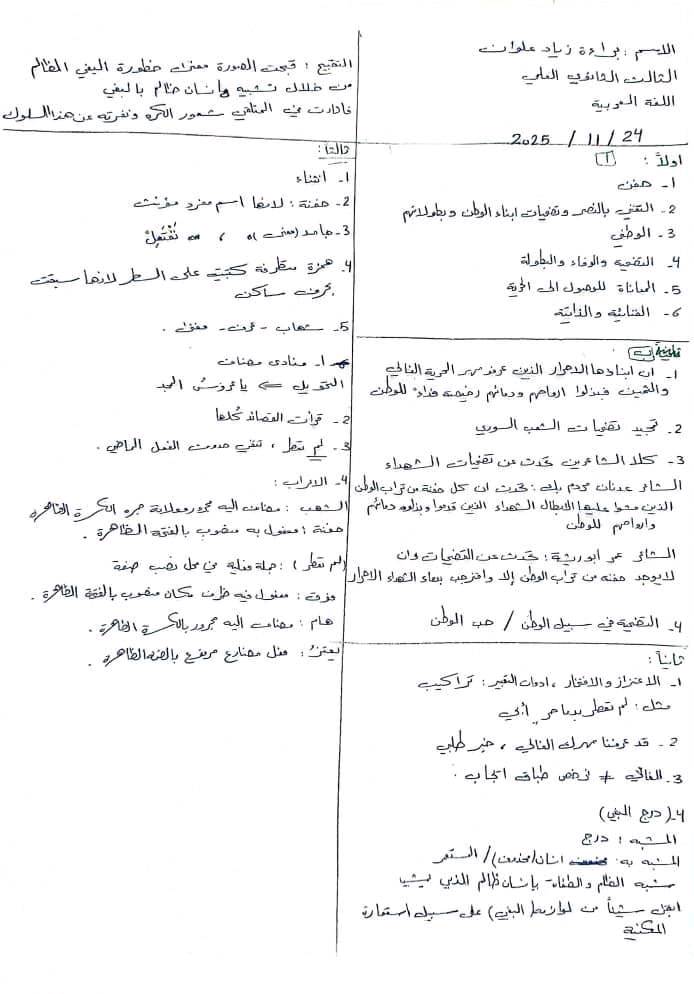 الاسم : براءة زياد علوان
الثالث الثانوي العلمي
اللغة العربية
2025 / 11 / 24
اولاً : أ
1- هفن
2- التغني بالنصر وتضحيات ابناء الوطن وبطولاتهم
3- الوطني
4- التضحية والوفاء والبطولة
5- المعاناة للوصول الى الحرية
6- الغنائية والذاتية
ب
1- ان ابناءها الاحرار الذين عرفو مهر الحرية الغالي
والثمين فبذلوا ارواحهم ودمائهم رخيصة فداءً للوطن
2- تمجيد تضحيات الشعب السوري
3- كلا الشاعرين تحدث عن تضحيات الشهداء
الشاعر عدنان مردم بك : تحدث ان كل حفنة من تراب الوطن
الذين سقط عليها الابطال الشهداء الذين قدموا وبذلوا دمائهم
وارواحهم للوطن
الشاعر عمر ابو ريشة : تحدث عن التضحيات وان
لا يوجد حفنة من تراب الوطن إلا وامتزجت بدماء الشهداء الاحرار
4- التضحية في سبيل الوطن / حب الوطن
ثانياً :
1- الاعتزاز والافتخار ، ادوات التعبير : تراكيب
مثل : لم تعطر بدما حر أبي
2- قد عرفنا مهرك الغالي ، خبر طلبي
3- الغالي ≠ نرخص طباق ايجاب .
4- (درج البغي)
المشبه : درج
المشبه به : انسان(محذوف) /
شبه الظلم والطغاة بإنسان ظالم الذي
شيئاً من لوازمه (البغي) على سبيل استعارة
المكنية
التقبيح : قبحت الصورة معنى خطورة البغي الظالم
من خلال تشبيه بإنسان ظالم بالبغي
فأثارت في المتلقي شعور الكره ونفرته عن هذا السلوك
ثالثاً :
1- انثناء
2- حفنة : لانها اسم مفرد مؤنث
3- جامد (معنى) ، تَفْتَعِلْ
4- همزة متطرفة كتبت على السطر لانها سبقت
بحرف ساكن
5- شهاب - عرف - معنى .
1- منادى مضاف
التحويل ⇐ يا عروسَ المجد
2- قرأت القصائد كُلها
3- لم تعطر ، تنفي حدوث الفعل الماضي .
4- الاعراب :
الشهب : مضاف اليه مجرور وعلامة جره الكسرة الظاهرة
حفنة : مفعول به منصوب بالفتحة الظاهرة .
(لم تعطر) : جملة فعلية في محل نصب صفة
فوق : مفعول فيه ظرف مكان منصوب بالفتحة الظاهرة .
هام : مضاف اليه مجرور بالكسرة الظاهرة .
فعل مضارع مرفوع بالضمة الظاهرة .